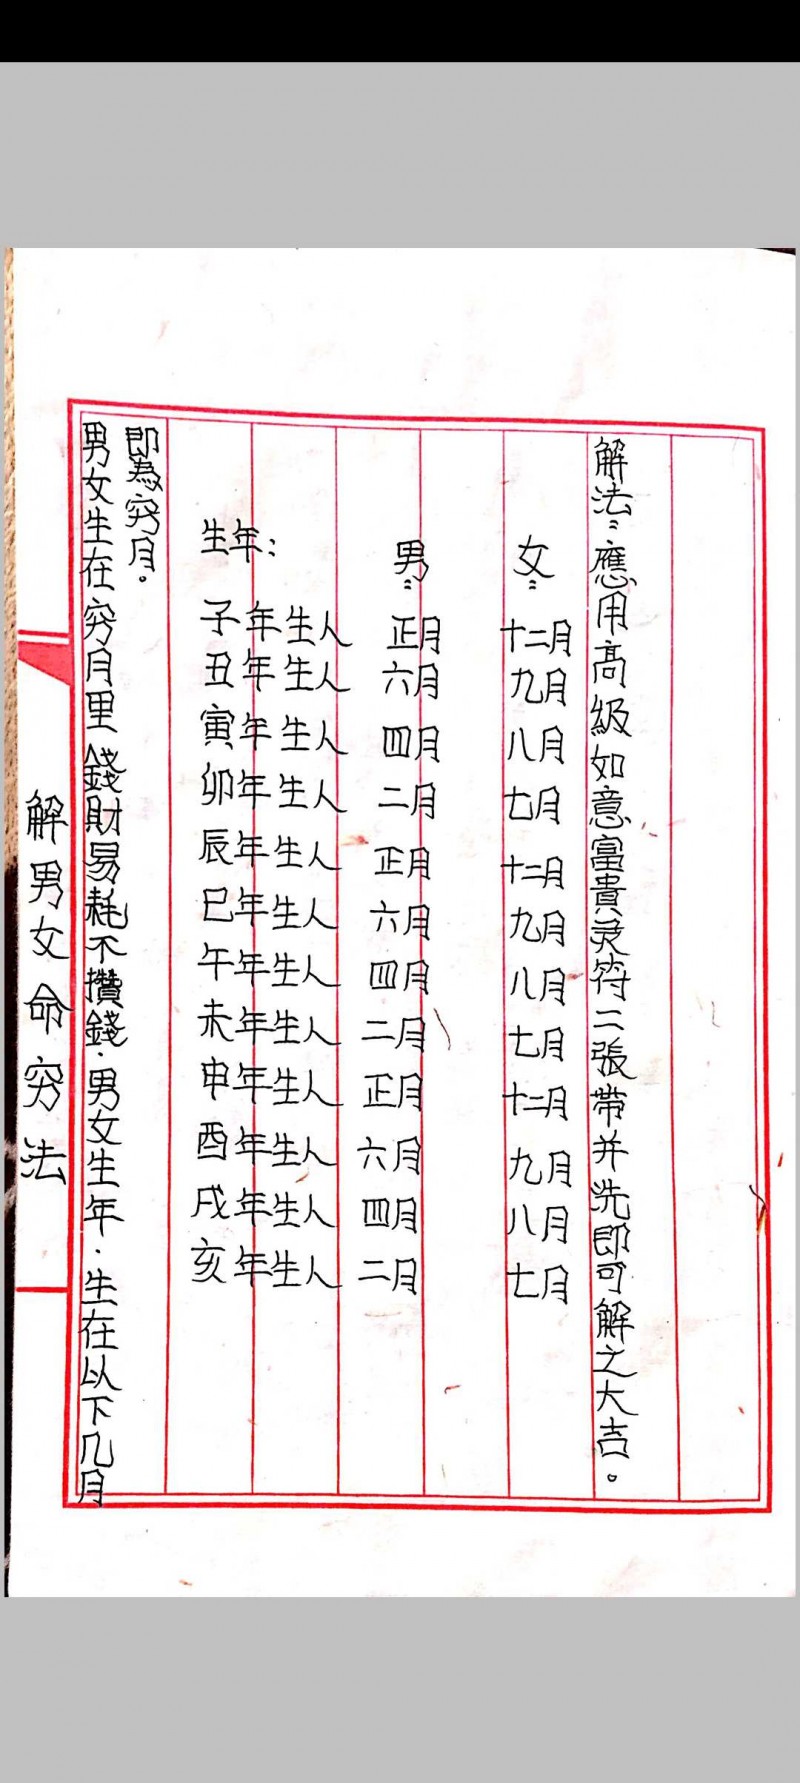 解男女命穷法
男女生在穷月里錢財易耗不攢錢.男女生年.生在以下几月
即為穷月。
生年:
男:
女:
子年生人 正月 十二月
丑年生人 六月 九月
寅年生人 四月 八月
卯年生人 二月 七月
辰年生人 正月 十二月
巳年生人 六月 九月
午年生人 四月 八月
未年生人 二月 七月
申年生人 正月 十二月
酉年生人 六月 九月
戌年生人 四月 八月
亥年生人 二月 七月
解法:應用高級如意富貴灵符二張带并洗即可解之大吉。